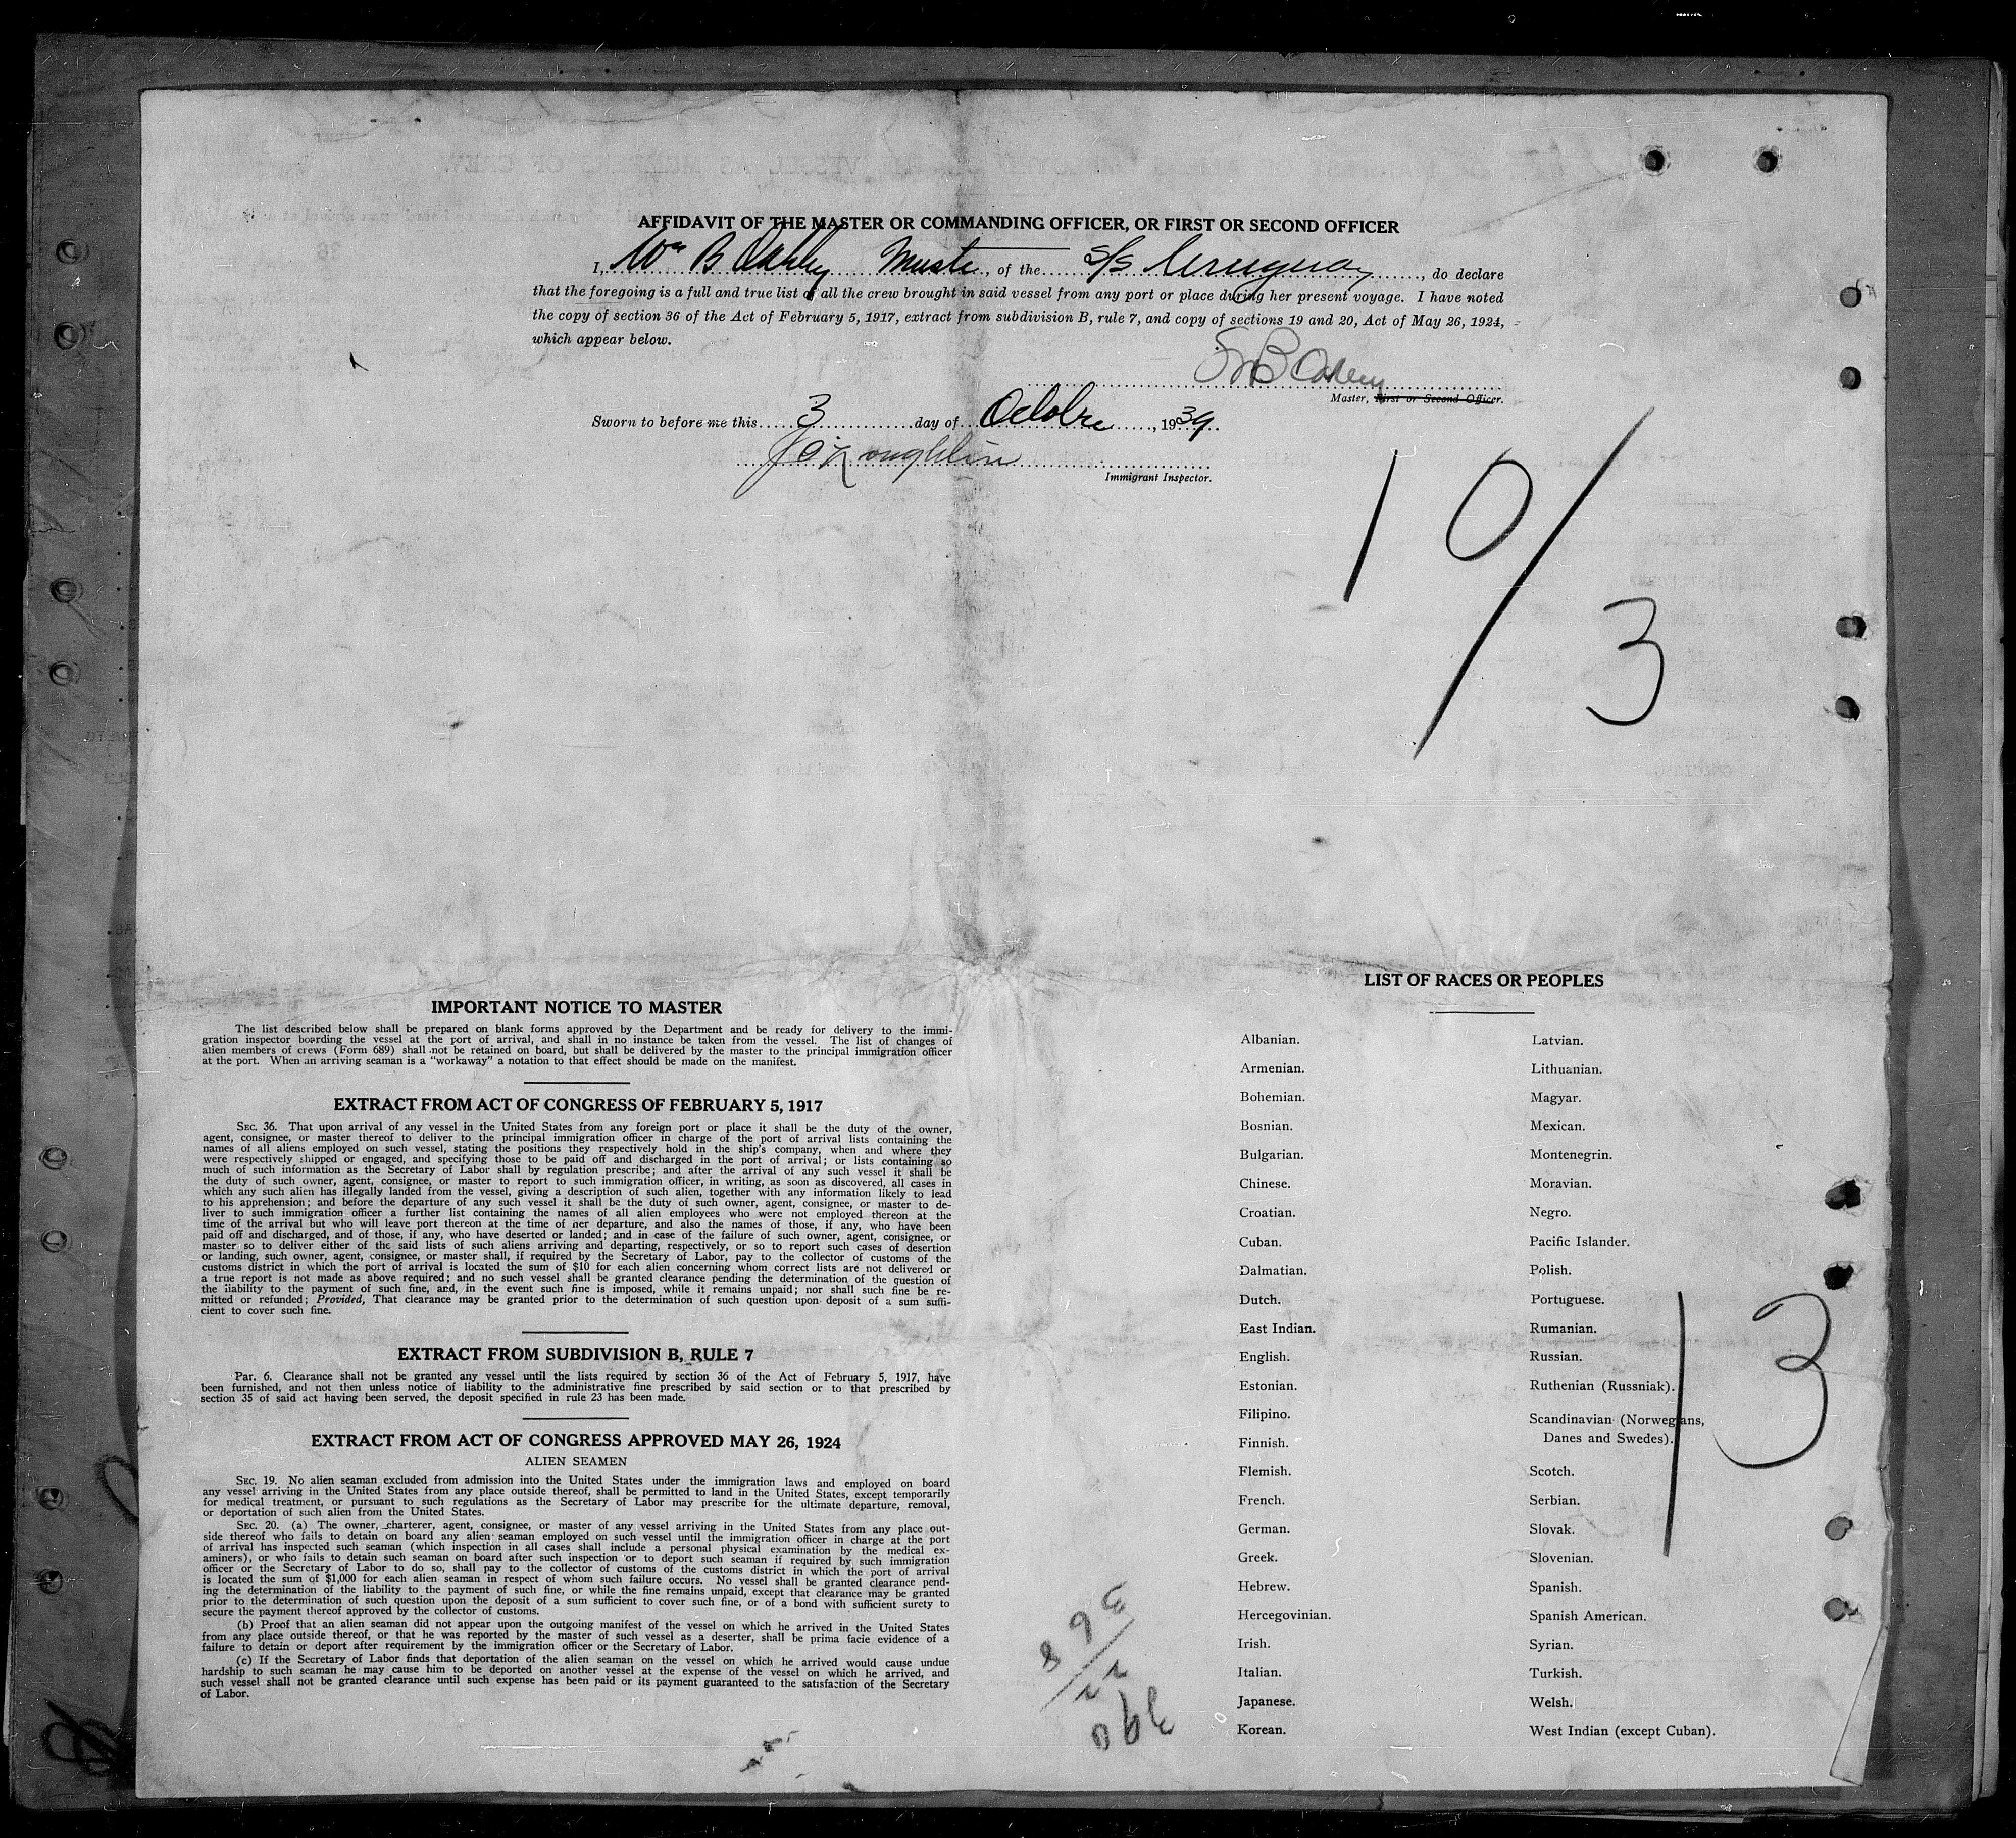 AFFIDAVIT OF THE MASTER OR COMMANDING OFFICER, OR FIRST OR SECOND OFFICER
I, Wm B Oakley Master, of the S/S Uruguay, do declare
that the foregoing is a full and true list of all the crew brought in said vessel from any port or place during her present voyage. I have noted
the copy of section 36 of the Act of February 5, 1917, extract from subdivision B, rule 7, and copy of sections 19 and 20, Act of May 26, 1924,
which appear below.
Master, First or Second Officer.
Sworn to before me this 3 day of October, 1939.
Immigrant Inspector.
10/3
IMPORTANT NOTICE TO MASTER
The list described below shall be prepared on blank forms approved by the Department and be ready for delivery to the immi-
gration inspector boarding the vessel at the port of arrival, and shall in no instance be taken from the vessel. The list of changes of
alien members of crews (Form 689) shall not be retained on board, but shall be delivered by the master to the principal immigration officer
at the port. When an arriving seaman is a "workaway" a notation to that effect should be made on the manifest.
EXTRACT FROM ACT OF CONGRESS OF FEBRUARY 5, 1917
SEC. 36. That upon arrival of any vessel in the United States from any foreign port or place it shall be the duty of the owner,
agent, consignee, or master thereof to deliver to the principal immigration officer in charge of the port of arrival lists containing the
names of all aliens employed on such vessel, stating the positions they respectively hold in the ship's company, when and where they
were respectively shipped or engaged, and specifying those to be paid off and discharged in the port of arrival; or lists containing so
much of such information as the Secretary of Labor shall by regulation prescribe; and after the arrival of any such vessel it shall be
the duty of such owner, agent, consignee, or master to report to such immigration officer, in writing, as soon as discovered, all cases in
which any such alien has illegally landed from the vessel, giving a description of such alien, together with any information likely to lead
to his apprehension; and before the departure of any such vessel it shall be the duty of such owner, agent, consignee, or master to de-
liver to such immigration officer a further list containing the names of all alien employees who were not employed thereon at the
time of the arrival but who will leave port thereon at the time of her departure, and also the names of those, if any, who have been
paid off and discharged, and of those, if any, who have deserted or landed; and in case of the failure of such owner, agent, consignee, or
master so to deliver either of the said lists of such aliens arriving and departing, respectively, or so to report such cases of desertion
or landing, such owner, agent, consignee, or master shall, if required by the Secretary of Labor, pay to the collector of customs of the
customs district in which the port of arrival is located the sum of $10 for each alien concerning whom correct lists are not delivered or
a true report is not made as above required; and no such vessel shall be granted clearance pending the determination of the question of
the liability to the payment of such fine, and, in the event such fine is imposed, while it remains unpaid; nor shall such fine be re-
mitted or refunded; Provided, That clearance may be granted prior to the determination of such question upon deposit of a sum suffi-
cient to cover such fine.
EXTRACT FROM SUBDIVISION B, RULE 7
Par. 6. Clearance shall not be granted any vessel until the lists required by section 36 of the Act of February 5, 1917, have
been furnished, and not then unless notice of liability to the administrative fine prescribed by said section or to that prescribed by
section 35 of said act having been served, the deposit specified in rule 23 has been made.
EXTRACT FROM ACT OF CONGRESS APPROVED MAY 26, 1924
ALIEN SEAMEN
SEC. 19. No alien seaman excluded from admission into the United States under the immigration laws and employed on board
any vessel arriving in the United States from any place outside thereof, shall be permitted to land in the United States, except temporarily
for medical treatment, or pursuant to such regulations as the Secretary of Labor may prescribe for the ultimate departure, removal,
or deportation of such alien from the United States.
SEC. 20. (a) The owner, charterer, agent, consignee, or master of any vessel arriving in the United States from any place out-
side thereof who fails to detain on board any alien seaman employed on such vessel until the immigration officer in charge at the port
of arrival has inspected such seaman (which inspection in all cases shall include a personal physical examination by the medical ex-
aminers), or who fails to detain such seaman on board after such inspection or to deport such seaman if required by such immigration
officer or the Secretary of Labor to do so, shall pay to the collector of customs of the customs district in which the port of arrival
is located the sum of $1,000 for each alien seaman in respect of whom such failure occurs. No vessel shall be granted clearance pend-
ing the determination of the liability to the payment of such fine, or while the fine remains unpaid, except that clearance may be granted
prior to the determination of such question upon the deposit of a sum sufficient to cover such fine, or of a bond with sufficient surety to
secure the payment thereof approved by the collector of customs.
(b) Proof that an alien seaman did not appear upon the outgoing manifest of the vessel on which he arrived in the United States
from any place outside thereof, or that he was reported by the master of such vessel as a deserter, shall be prima facie evidence of a
failure to detain or deport after requirement by the immigration officer or the Secretary of Labor.
(c) If the Secretary of Labor finds that deportation of the alien seaman on the vessel on which he arrived would cause undue
hardship to such seaman he may cause him to be deported on another vessel at the expense of the vessel on which he arrived, and
such vessel shall not be granted clearance until such expense has been paid or its payment guaranteed to the satisfaction of the Secretary
of Labor.
LIST OF RACES OR PEOPLES
Albanian.
Armenian.
Bohemian.
Bosnian.
Bulgarian.
Chinese.
Croatian.
Cuban.
Dalmatian.
Dutch.
East Indian.
English.
Estonian.
Filipino.
Finnish.
Flemish.
French.
German.
Greek.
Hebrew.
Hercegovinian.
Irish.
Italian.
Japanese.
Korean.
Latvian.
Lithuanian.
Magyar.
Mexican.
Montenegrin.
Moravian.
Negro.
Pacific Islander.
Polish.
Portuguese.
Rumanian.
Russian.
Ruthenian (Russniak).
Scandinavian (Norwegians,
Danes and Swedes).
Scotch.
Serbian.
Slovak.
Slovenian.
Spanish.
Spanish American.
Syrian.
Turkish.
Welsh.
West Indian (except Cuban).
13